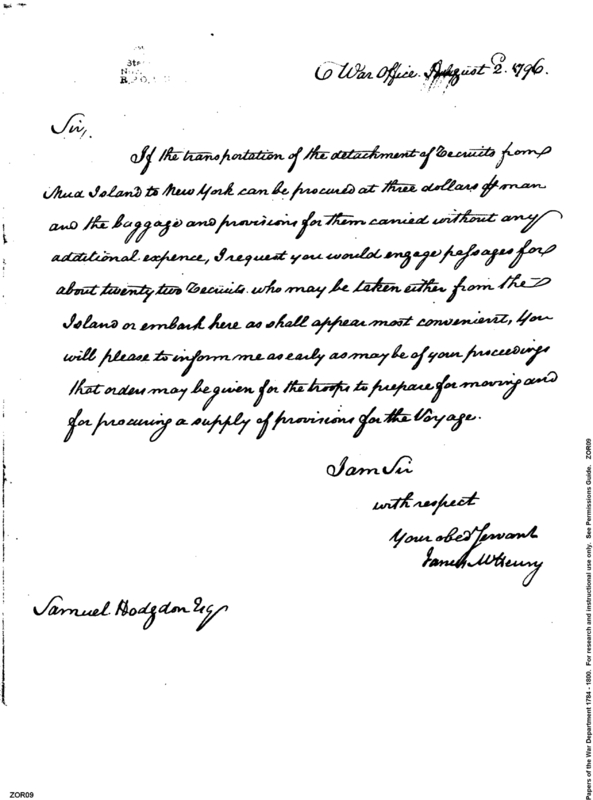 War Office. August 2. 1796.
Sir,
If the transportation of the detachment of Recruits from
Mud Island to New York can be procured at three dollars ⅌ man
and the baggage and provisions for them carried without any
additional expence, I request you would engage passages for
about twenty two Recruits who may be taken either from the
Island or embark here as shall appear most convenient, You
will please to inform me as early as may be of your proceedings
that orders may be given for the troops to prepare for moving and
for procuring a supply of provisions for the Voyage.
I am Sir
with respect
Your obed Servant
James McHenry
Samuel Hodgdon Esq
Papers of the War Department 1784 - 1800. For research and instructional use only. See Permissions Guide. ZOR09
ZOR09